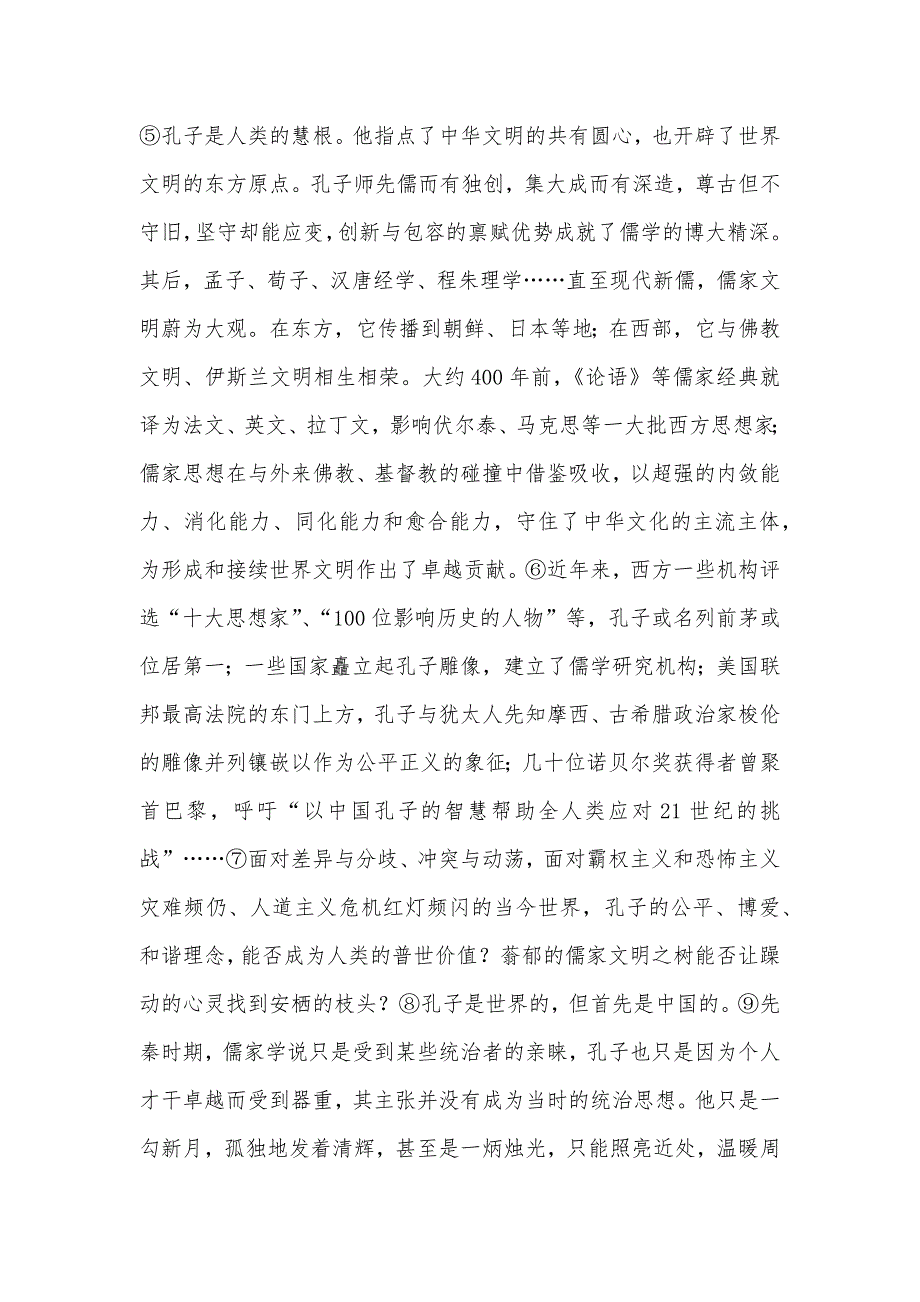 ⑤孔子是人类的慧根。他指点了中华文明的共有圆心，也开辟了世界
文明的东方原点。孔子师先儒而有独创，集大成而有深造，尊古但不
守旧，坚守却能应变，创新与包容的禀赋优势成就了儒学的博大精深。
其后，孟子、荀子、汉唐经学、程朱理学……直至现代新儒，儒家文
明蔚为大观。在东方，它传播到朝鲜、日本等地；在西部，它与佛教
文明、伊斯兰文明相生相荣。大约 400 年前，《论语》等儒家经典就
译为法文、英文、拉丁文，影响伏尔泰、马克思等一大批西方思想家；
儒家思想在与外来佛教、基督教的碰撞中借鉴吸收，以超强的内敛能
力、消化能力、同化能力和愈合能力，守住了中华文化的主流主体，
为形成和接续世界文明作出了卓越贡献。⑥近年来，西方一些机构评
选“十大思想家”、“100 位影响历史的人物”等，孔子或名列前茅或
位居第一；一些国家矗立起孔子雕像，建立了儒学研究机构；美国联
邦最高法院的东门上方，孔子与犹太人先知摩西、古希腊政治家梭伦
的雕像并列镶嵌以作为公平正义的象征；几十位诺贝尔奖获得者曾聚
首巴黎，呼吁“以中国孔子的智慧帮助全人类应对 21 世纪的挑
战”……⑦面对差异与分歧、冲突与动荡，面对霸权主义和恐怖主义
灾难频仍、人道主义危机红灯频闪的当今世界，孔子的公平、博爱、
和谐理念，能否成为人类的普世价值？蓊郁的儒家文明之树能否让躁
动的心灵找到安栖的枝头？⑧孔子是世界的，但首先是中国的。⑨先
秦时期，儒家学说只是受到某些统治者的亲睐，孔子也只是因为个人
才干卓越而受到器重，其主张并没有成为当时的统治思想。他只是一
勾新月，孤独地发着清辉，甚至是一炳烛光，只能照亮近处，温暖周